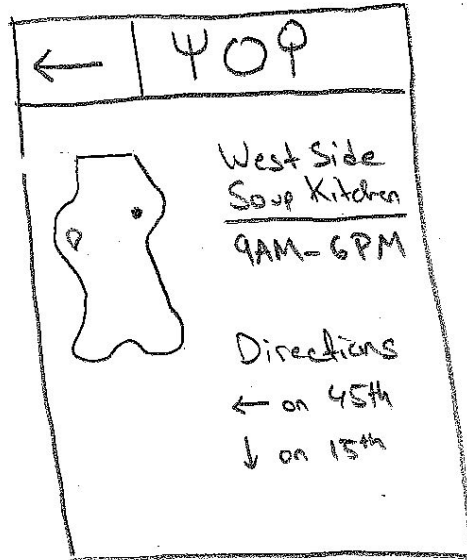 ←
West Side
Soup Kitchen
9AM-6PM
Directions
← on 45th
↓ on 15th